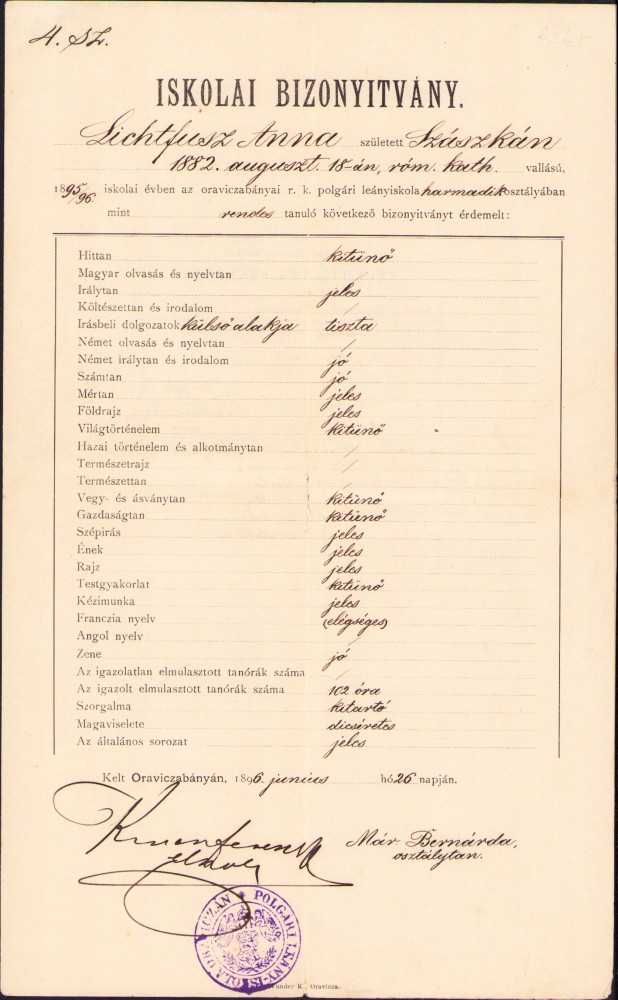 4. SZ.
ISKOLAI BIZONYITVÁNY.
Lichtfusz Anna született Szászkán
1882. auguszt. 18-án, róm. kath. vallású,
1895/96. iskolai évben az oraviczabányai r. k. polgári leányiskola harmadik osztályában
mint rendes tanuló következő bizonyitványt érdemelt:
Hittan kitünő
Magyar olvasás és nyelvtan /
Irálytan jeles
Költészettan és irodalom /
Irásbeli dolgozatok külső alakja tiszta
Német olvasás és nyelvtan /
Német irálytan és irodalom jó
Számtan jó
Mértan jeles
Földrajz jeles
Világtörténelem kitünő
Hazai történelem és alkotmánytan /
Természetrajz /
Természettan /
Vegy- és ásványtan kitünő
Gazdaságtan kitünő
Szépirás jeles
Ének jeles
Rajz jeles
Testgyakorlat kitünő
Kézimunka jeles
Franczia nyelv (elégséges)
Angol nyelv /
Zene jó
Az igazolatlan elmulasztott tanórák száma /
Az igazolt elmulasztott tanórák száma 102 óra
Szorgalma kitartó
Magaviselete dicséretes
Az általános sorozat jeles
Kelt Oraviczabányán, 1896. junius hó 26 napján.
Már. Bernárda,
osztálytan.
POLGÁRI LEÁNY-ISKOLA ORAVICZÁN
Wunder K., Oravicza.